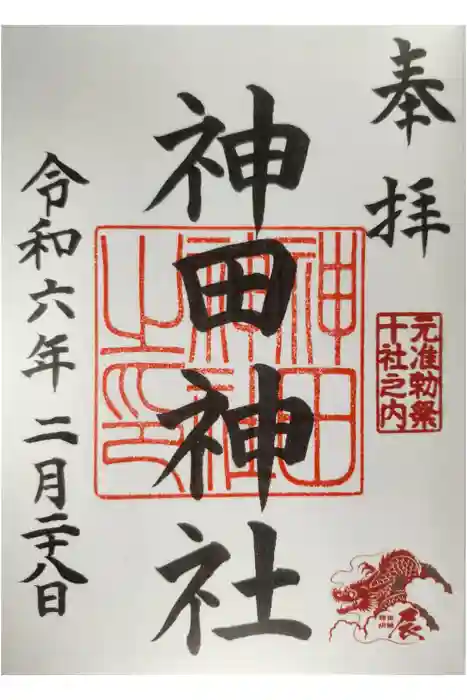 奉拝
元准勅祭
十社之内
辰
神田神社
神田
神社
之印
令和六年二月二十八日